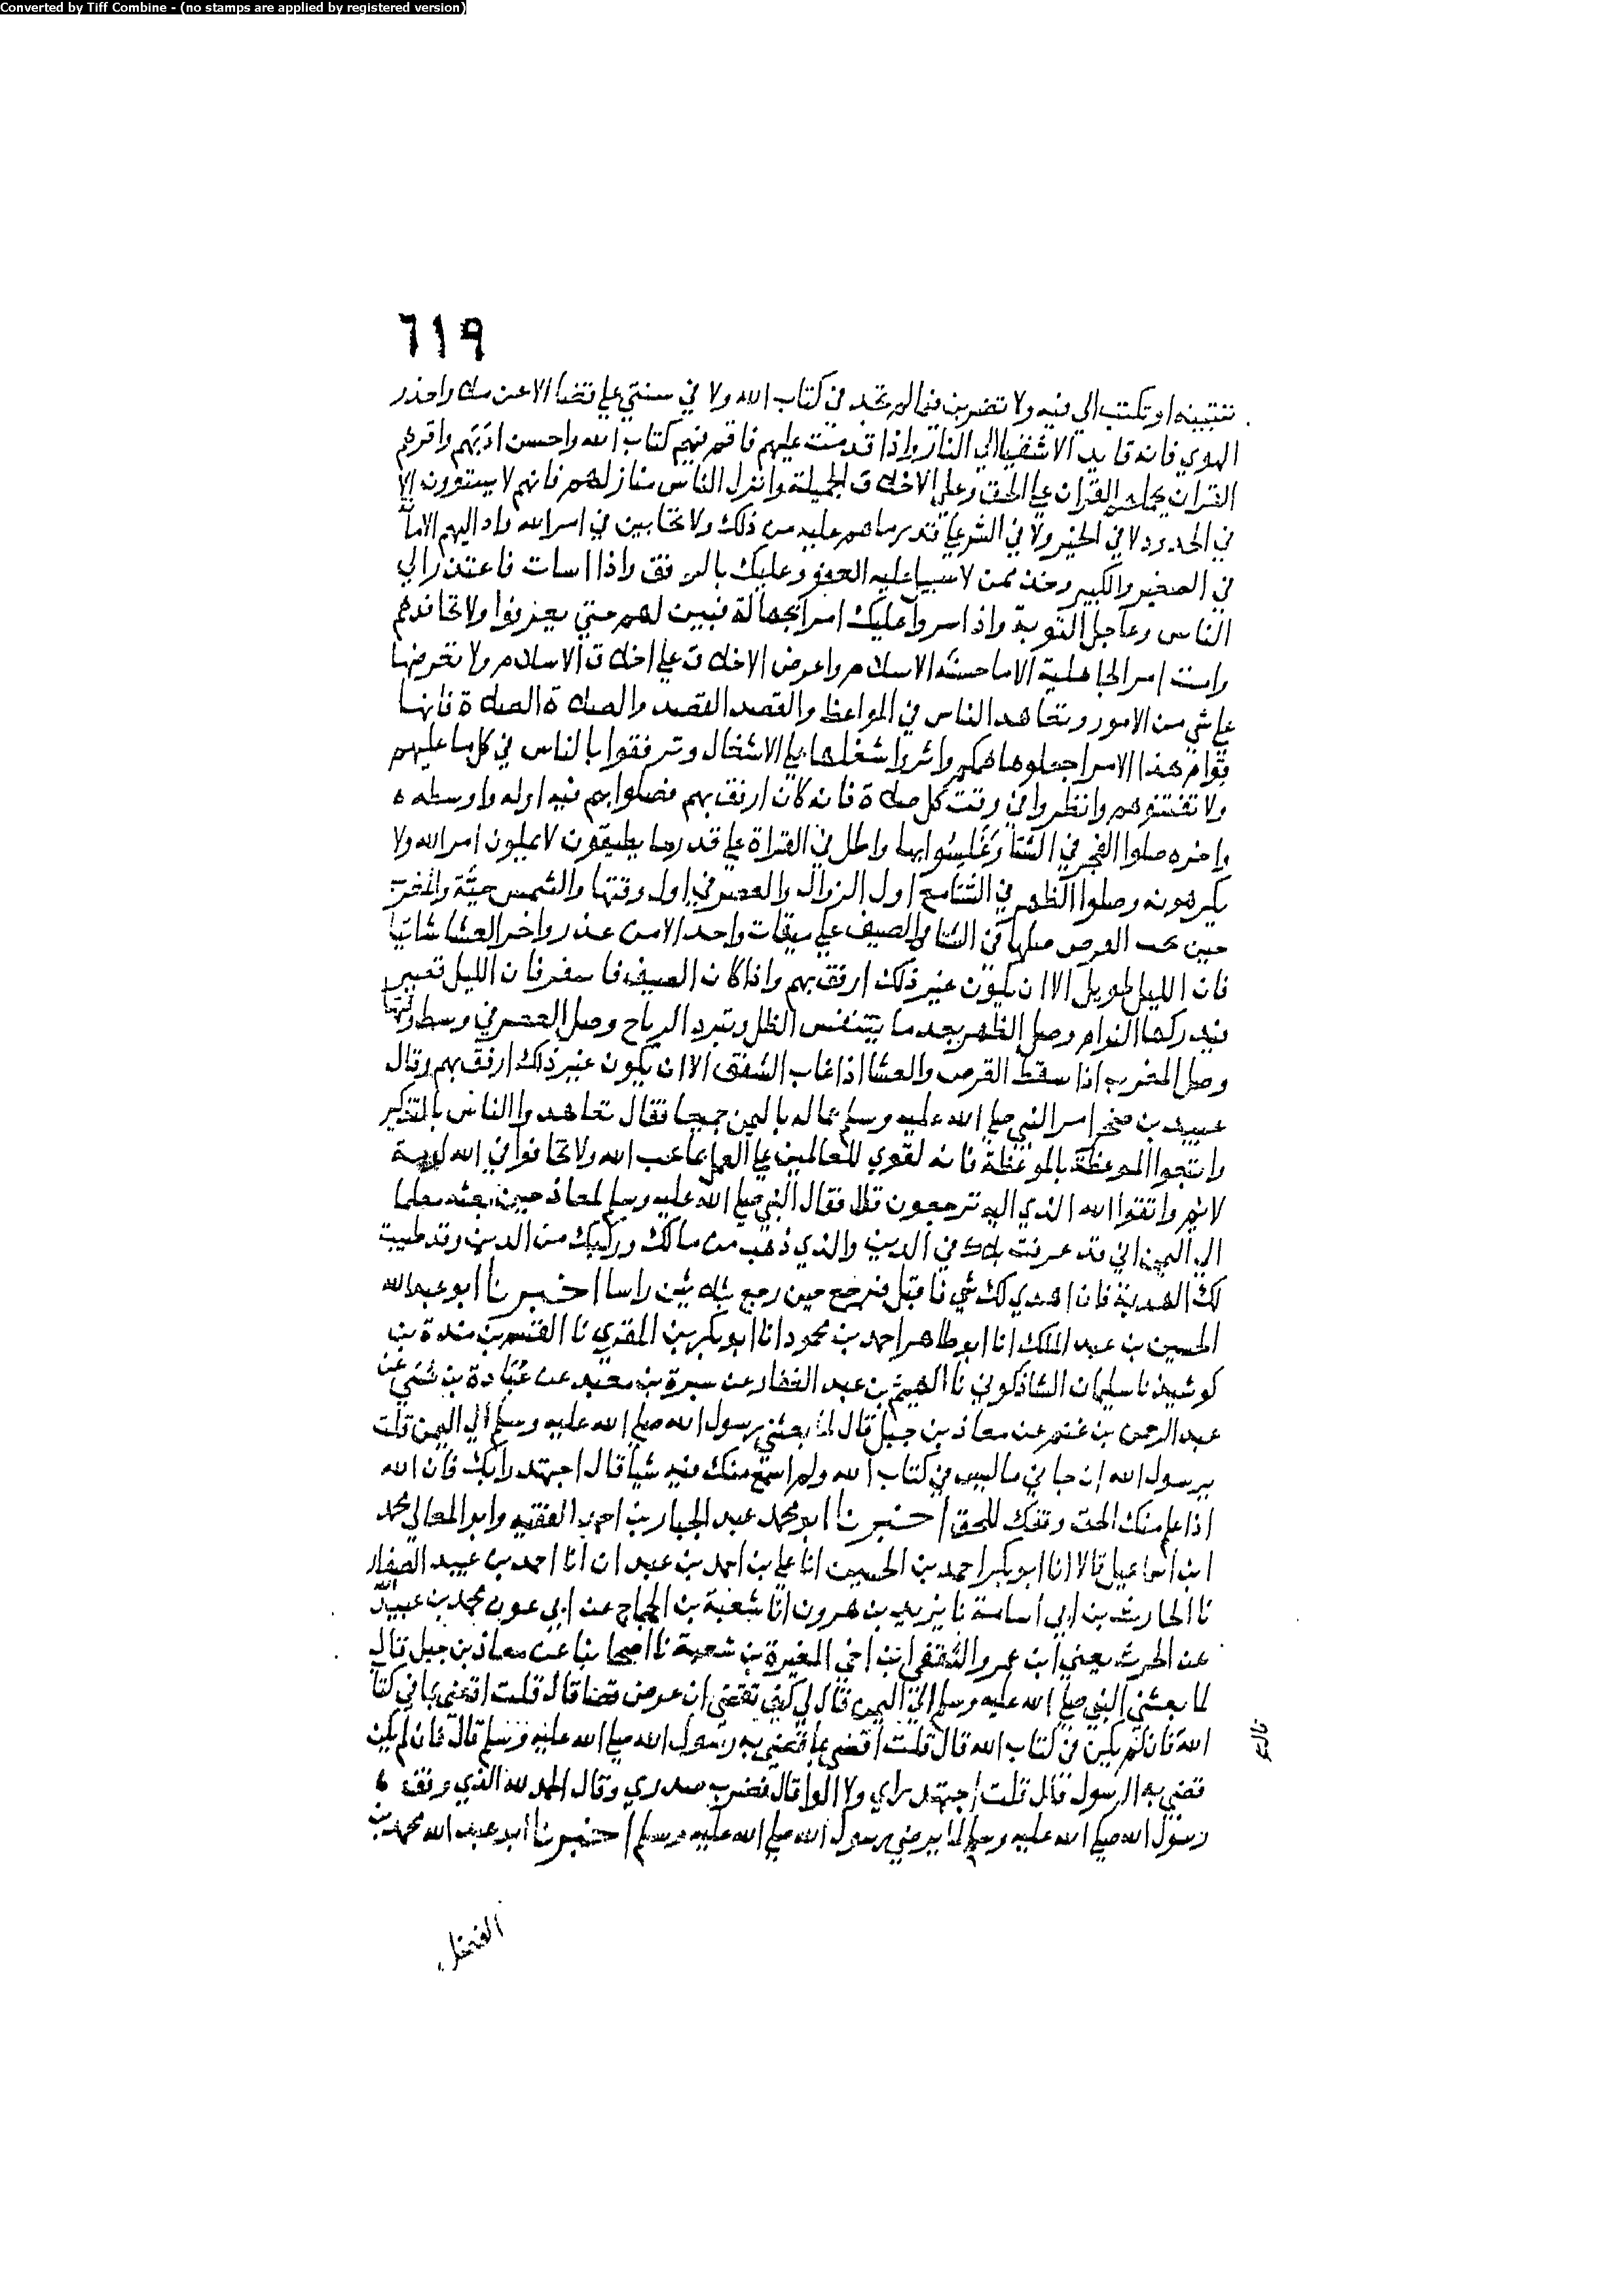 Converted by Tiff Combine - (no stamps are applied by registered version)
٦١٩
تتبينه او تكتب الي فيه ولا تضربن فيما لم تجد في كتاب الله ولا في سنتي علي قضا الا عن ملا واحذر
الهوي فانه قايد الاشقيا الي النار واذا قدمت عليهم فاقم فيهم كتاب الله واحسن ادبهم واقرئهم
القران يحملهم القران علي الحق وعلي الاخلاق الجميلة وانزل الناس منازلهم فانهم لا يستوون الا
في الحدود لا في الخير ولا في الشر علي قدر ما هم عليه من ذلك ولا تحابين في امر الله واد اليهم الامانة
في الصغير والكبير وخذ ممن لا سبيل عليه العفو وعليك بالرفق واذا اسات فاعتذر الي
الناس وعاجل التوبة واذا اسروا عليك امرا بجهالة فبين لهم حتي يعرفوا ولا تحاقدهم
وامت امر الجاهلية الا ما حسنه الاسلام واعرض الاخلاق علي اخلاق الاسلام ولا تعرضها
علي شي من الامور وتعاهد الناس في المواعظ والقصد القصد والصلاة الصلاة فانها
قوام هذا الامر اجعلوها همكم واثروا شغلها علي الاشغال وترفقوا بالناس في كل ما عليهم
ولا تفتنوهم وانظروا في وقت كل صلاة فانه كان ارفق بهم فصلوا بهم فيه اوله واوسطه
واخره صلوا الفجر في الشتا وغلسوا بها واطل في القراة علي قدر ما يطيقون لا يملون امر الله ولا
يكرهونه وصلوا الظهر في الشتا مع اول الزوال والعصر في اول وقتها والشمس حية والمغرب
حين يجب القرص صلها في الشتا والصيف علي ميقات واحد الا من عذر واخر العشا شاتيا
فان الليل طويل الا ان يكون غير ذلك ارفق بهم واذا كان الصيف فاسفر فان الليل قصير
فيدركها النوام وصل الظهر بعد ما يتنفس الظل وتبرد الرياح وصل العصر في وسط وقتها
وصل المغرب اذا سقط القرص والعشا اذا غاب الشفق الا ان يكون غير ذلك ارفق بهم وقال
عبيد بن صخر امر النبي صلي الله عليه وسلم عماله باليمن جميعا فقال تعاهدوا الناس بالتذكير
واتبعوا الموعظة بالموعظة فانه لقوي للعالمين علي العمل بما يحب الله ولا تخافوا في الله لومة
لائم واتقوا الله الذي اليه ترجعون قال فقال النبي صلي الله عليه وسلم لمعاذ حين بعثه معلما
الي اليمن اني قد عرفت بلاك في الدين والذي ذهب من مالك وركبك من الدين وقد طيبت
لك الهدية فان اهدي لك شي فاقبل فرجع حين رجع بثلاثين راسا اخبرنا ابو عبد الله
الحسين بن عبد الملك انا ابو طاهر احمد بن محمود انا ابو بكر بن المقري نا القسم بن مندة بن
كوشيذ نا سليمان الشاذكوني نا الهيثم بن عبد الغفار عن سبرة بن معبد عن عبادة بن نسي عن
عبد الرحمن بن غنم عن معاذ بن جبل قال لما بعثني رسول الله صلي الله عليه وسلم الي اليمن قلت
يرسول الله ان جاني ما ليس في كتاب الله ولم اسمع منك فيه شيا قال اجتهد رايك فان الله
اذا علم منك الحق وفقك للحق اخبرنا ابو محمد عبد الجبار بن احمد الفقيه وابو المعالي محمد
ابن اسماعيل قالا انا ابو بكر احمد بن الحسين انا علي بن احمد بن عبدان انا احمد بن عبيد الصفار
نا الحارث بن ابي اسامة نا يزيد بن هرون انا شعبة بن الحجاج عن ابي عون محمد بن عبيد الله
عن الحرث يعني ابن عمرو الثقفي ابن اخي المغيرة بن شعبة نا اصحابنا عن معاذ بن جبل قال
لما بعثني النبي صلي الله عليه وسلم الي اليمن قال لي كيف تقضي ان عرض قضا قال قلت اقضي بما في كتاب
الله فان لم يكن في كتاب الله قال قلت اقضي بما قضي به رسول الله صلي الله عليه وسلم قال فان لم يكن
قضي به الرسول قال قلت اجتهد براي ولا الوا قال فضرب صدري وقال الحمد لله الذي وفق
رسول الله صلي الله عليه وسلم لما يرضي رسول الله صلي الله عليه وسلم اخبرنا ابو عبد الله محمد بن
الفضل